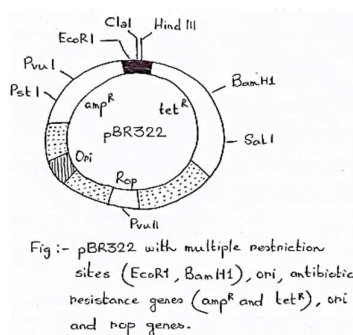 ClaI
Hind III
EcoRI
PvuI
PstI
BamH1
ampR
tetR
pBR322
SalI
Ori
Rop
PvuII
Fig :- pBR322 with multiple restriction
sites (EcoR1, BamH1), ori, antibiotic
resistance genes (ampR and tetR), ori
and rop genes.